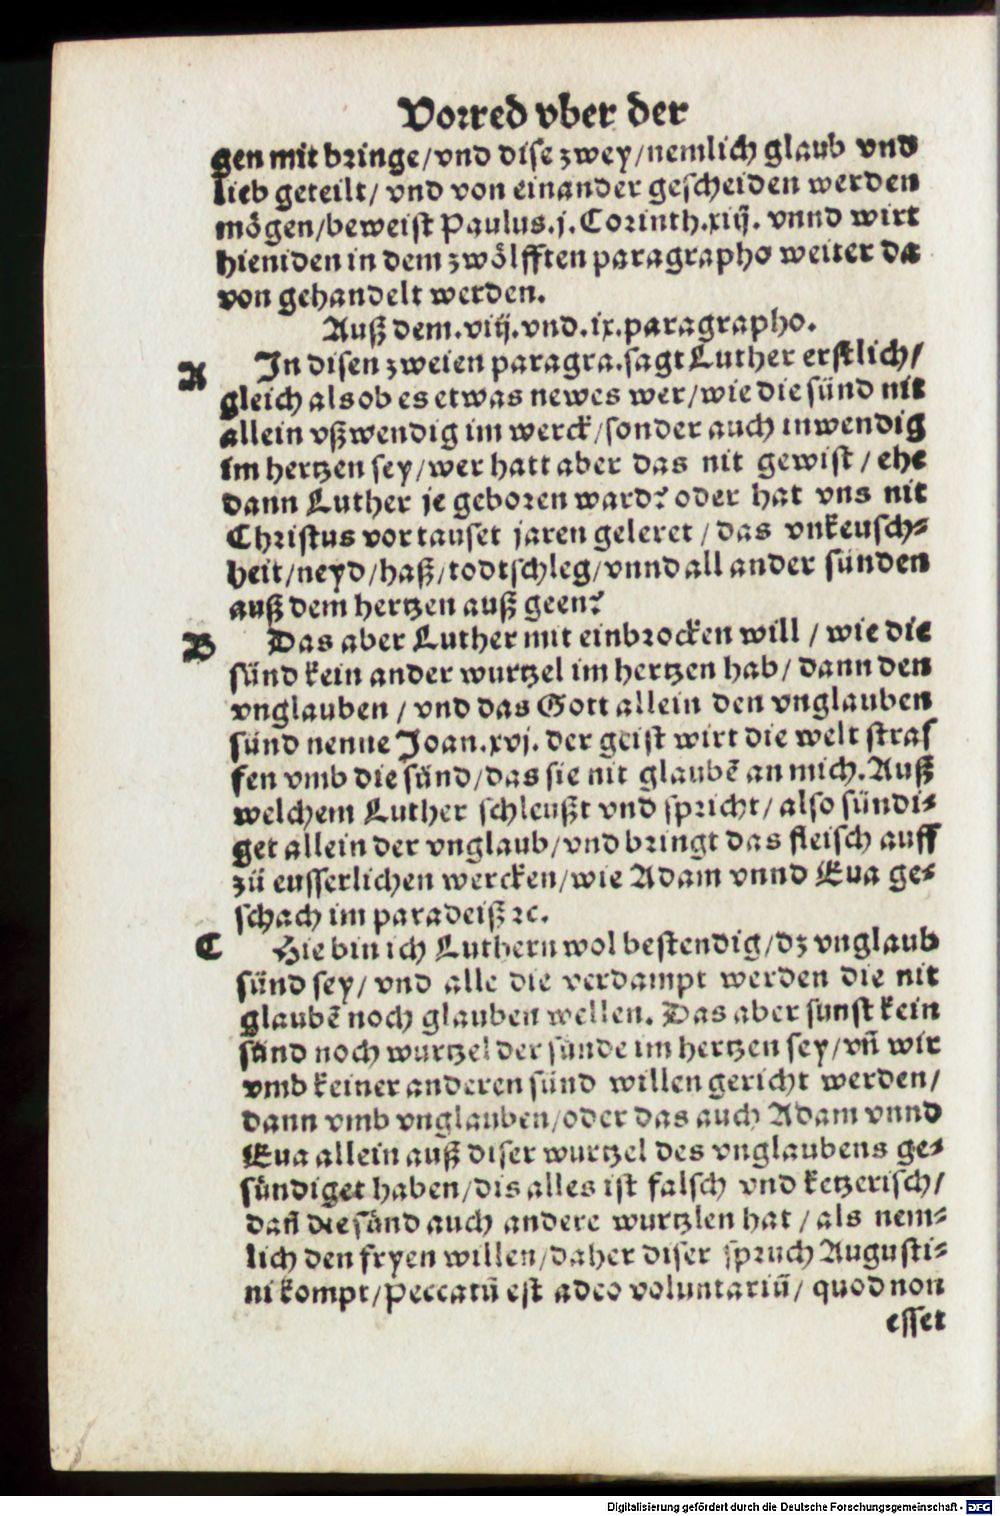 Vorred vber der
gen mit bringe/vnd dise zwey/nemlich glaub vnd
lieb geteilt/ vnd von einander gescheiden werden
mögen/beweist Paulus.j.Corinth.xiij. vnnd wirt
hieniden in dem zwölfften paragrapho weiter da
von gehandelt werden.
Auß dem.viij.vnd.ix.paragrapho.
A In disen zweien paragra.sagt Luther erstlich/
gleich als ob es etwas newes wer/wie die sünd nit
allein vßwendig im werck/sonder auch inwendig
im hertzen sey/wer hatt aber das nit gewist/ehe
dann Luther je geboren ward? oder hat vns nit
Christus vor tauset jaren geleret/das vnkeusch-
heit/neyd/haß/todtschleg/vnnd all ander sünden
auß dem hertzen auß geen?
B Das aber Luther mit einbrocken will/wie die
sünd kein ander wurtzel im hertzen hab/dann den
vnglauben/vnd das Gott allein den vnglauben
sünd nenne Joan.xvj. der geist wirt die welt straf
fen vmb die sünd/das sie nit glaubē an mich.Auß
welchem Luther schleußt vnd spricht/also sündi-
get allein der vnglaub/vnd bringt das fleisch auff
zů eusserlichen wercken/wie Adam vnnd Eua ge-
schach im paradeiß ꝛc.
C Hie bin ich Luthern wol bestendig/dz vnglaub
sünd sey/vnd alle die verdampt werden die nit
glaubē noch glauben wellen. Das aber sunst kein
sünd noch wurtzel der sünde im hertzen sey/vn̄ wir
vmb keiner anderen sünd willen gericht werden/
dann vmb vnglauben/oder das auch Adam vnnd
Eua allein auß diser wurtzel des vnglaubens ge-
sündiget haben/dis alles ist falsch vnd ketzerisch/
dañ die sünd auch andere wurtzlen hat/als nem-
lich den fryen willen/daher diser spruch Augusti-
ni kompt/Peccatū est adeo voluntariū/quod non
esset
Digitalisierung gefördert durch die Deutsche Forschungsgemeinschaft - DFG